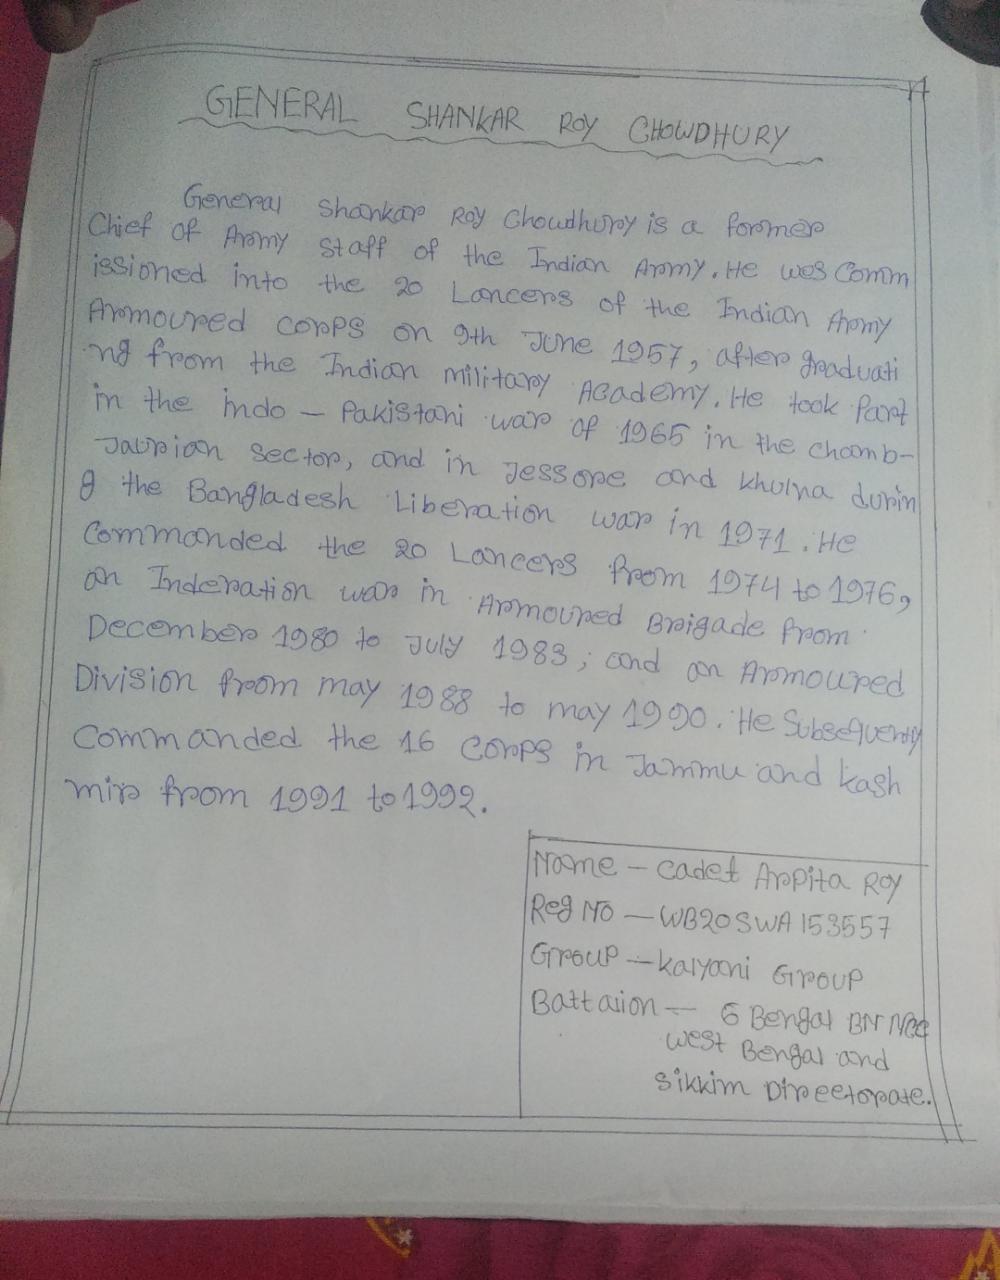 GENERAL SHANKAR ROY CHOWDHURY
General Shankar Roy Choudhury is a former
Chief of Army Staff of the Indian Army. He wes Comm
issioned into the 20 Lancers of the Indian Army
Armoured corps on 9th June 1957, after graduati
ng from the Indian military Academy. He took Part
in the indo - Pakistani war of 1965 in the chamb-
Jaurian Sector, and in Jessore and khulna durin
g the Bangladesh Liberation war in 1971. He
Commanded the 20 Lancers from 1974 to 1976,
an Inderation war in Armoured Brigade from
December 1980 to July 1983; and an Armoured
Division from may 1988 to may 1990. He Subsequently
Commanded the 16 Corps in Jammu and kash
mir from 1991 to 1992.
Name - cadet Arpita Roy
Reg No - WB20SWA153557
Group - kalyani Group
Battalion - 6 Bengal BN NCC
west Bengal and
Sikkim Directorate.